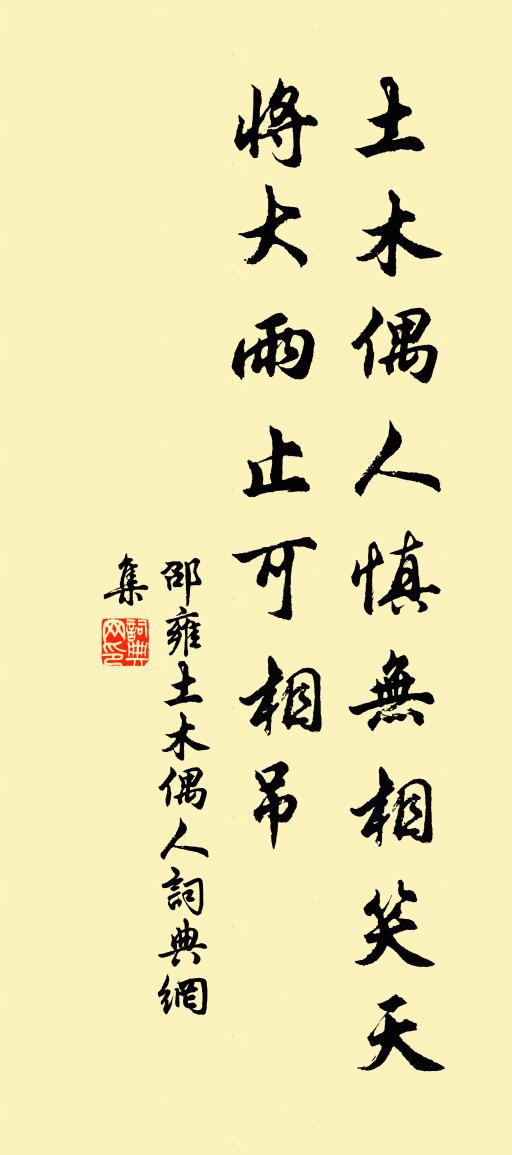 土木偶人慎無相笑天
將大雨止可相吊
邵雍土木偶人詞典網
集
詞典
网印